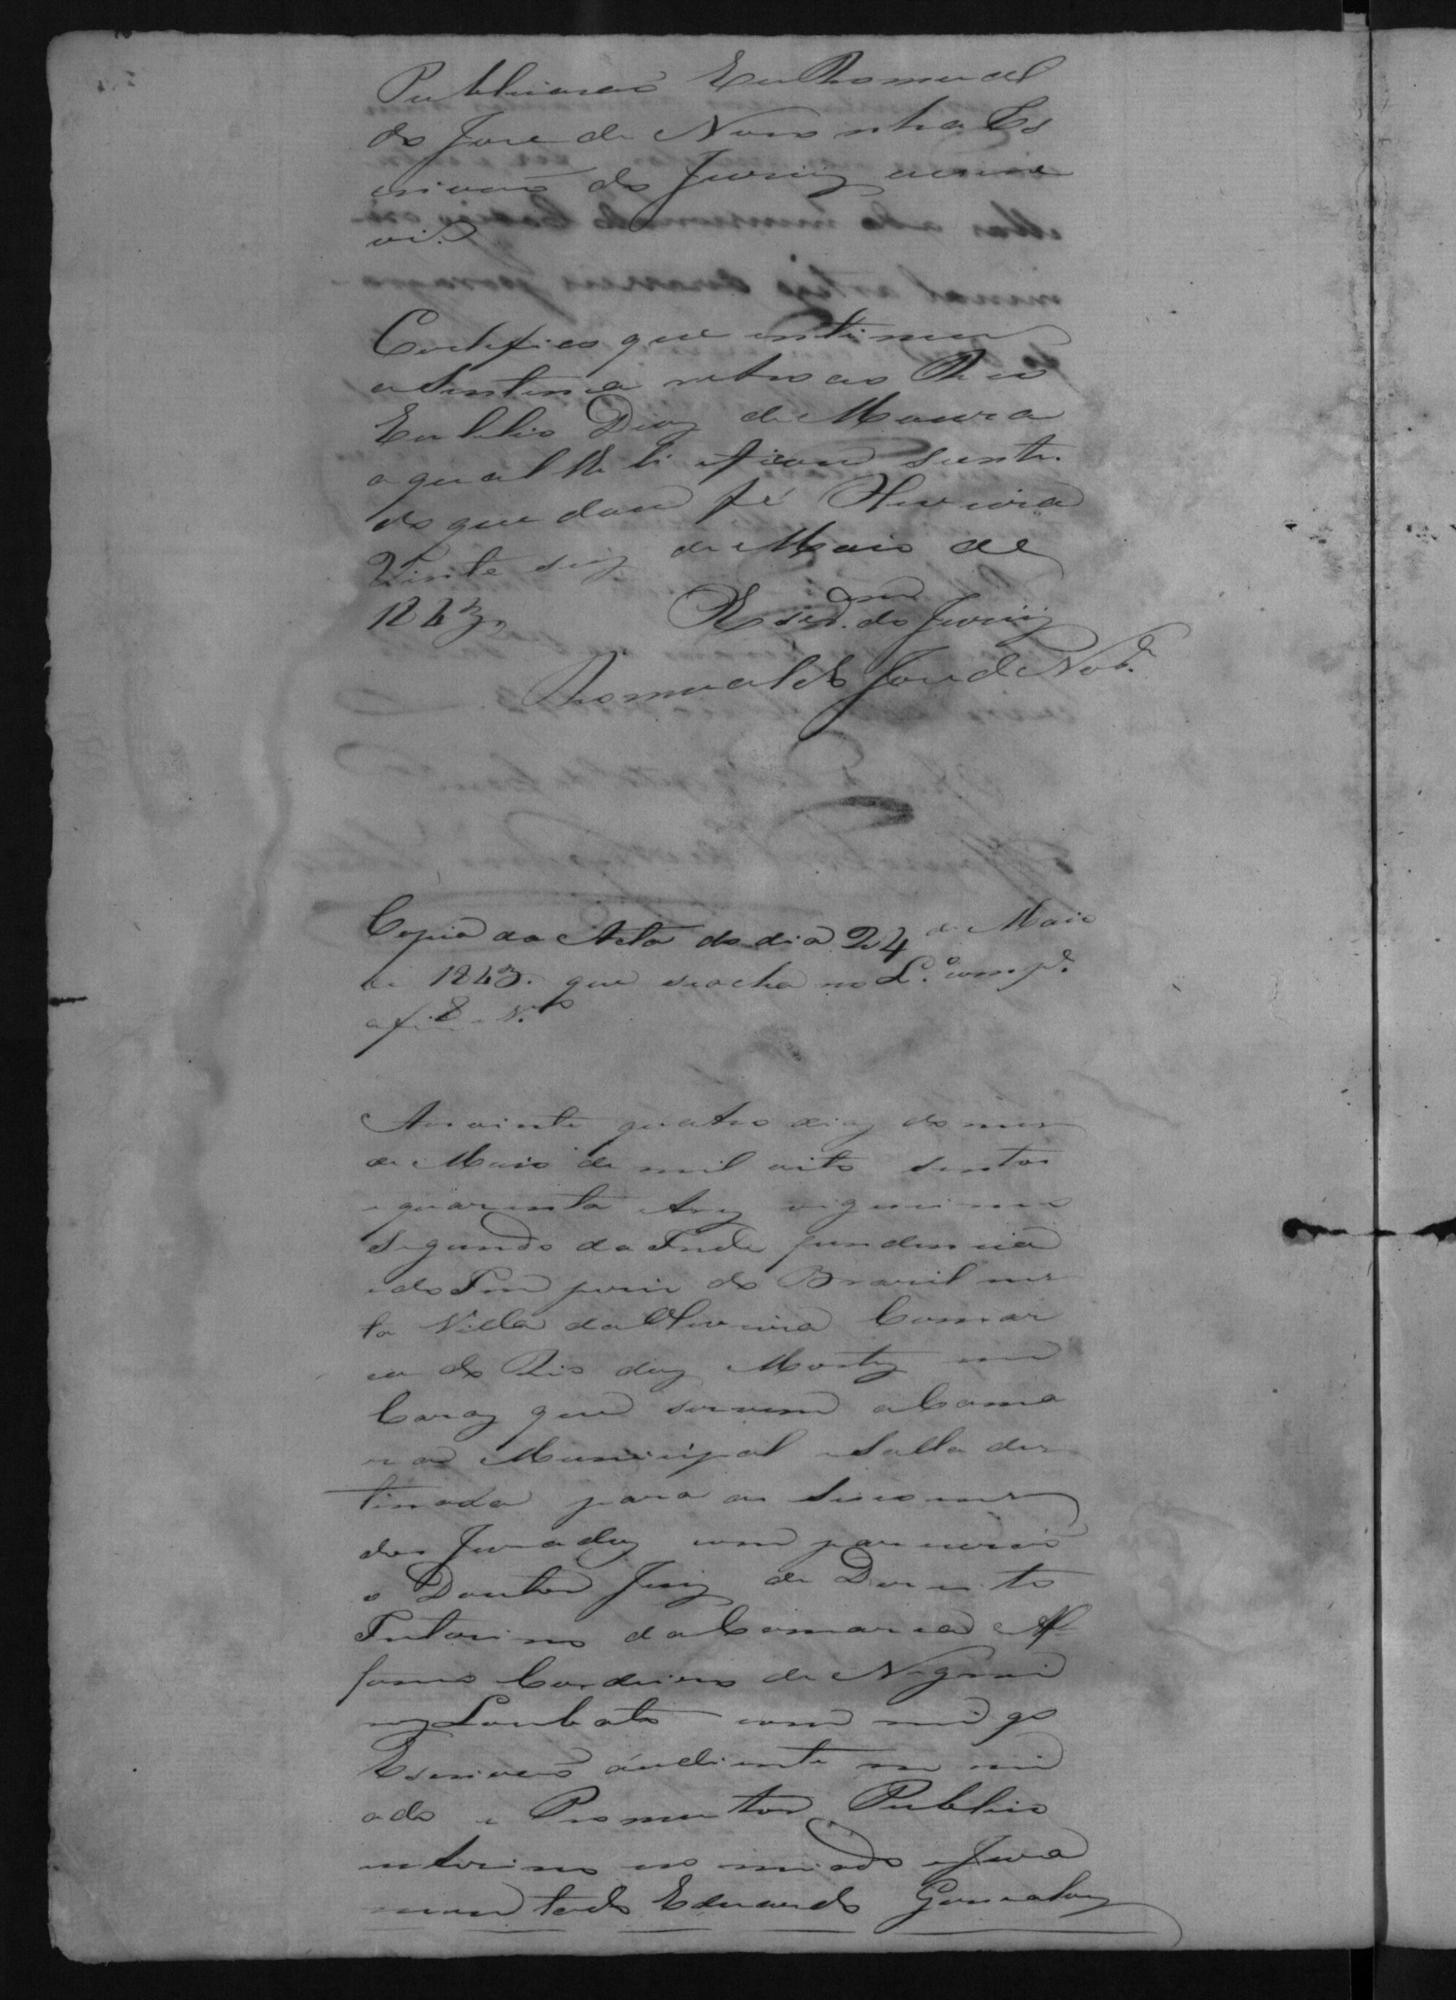 Publicacaõ Eu Romual
do Jose de Noronha Es
crivaõ do Jury escre
vi.
Certifico que intimei
a Sentenca retro ao Reo
Eusebio Diaz de Moura
a qual lhe li e ficou sciente
do que dou fé Oliveira
Vinte seiz de Maio de
1843
O Escr.am do Jury
Romualdo Jose de Nor.a
Copia da Acta do dia 24 de Maio
de 1843. que se acha no L.o comp.e
a f 8 N.o
Aos vinte quatro diaz do mez
de Maio de mil oito sentos
e quarenta e trez vigecimo
segundo da Inde pendencia
e do Im perio do Brazil nes
ta Villa da Oliveira Comar
ca do Rio daz Mortez em
Cazaz que servem a Cama
ra Municipal e Salla des
tinada para as Secoens
dos Juradoz comparecêo
o Doutor Juiz de Dereito
Interino da Comarca Af
fonso Cordeiro de Negrei
roz Loubato com migo
Escrivaõ audiante no mi
ado e Promotor Publico
interino no miado e Jura
mentado Eduardo Gonsalvez